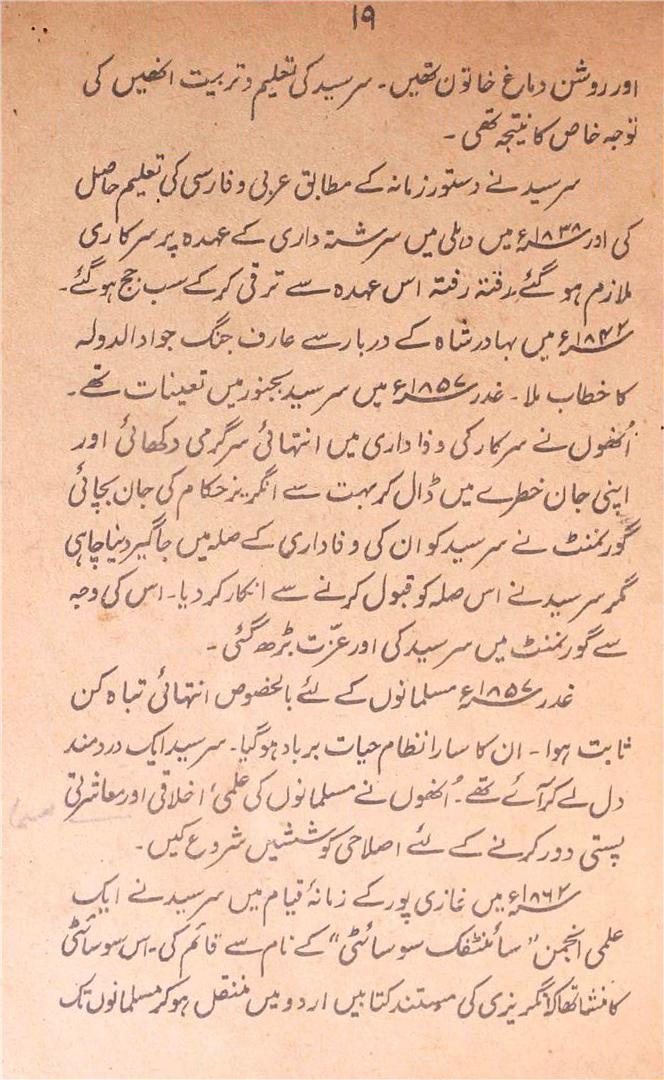 ۱۹
اور روشن دماغ خاتون تھیں۔ سرسید کی تعلیم و تربیت انھیں کی
توجہ خاص کا نتیجہ تھی۔
سرسید نے دستور زمانہ کے مطابق عربی و فارسی کی تعلیم حاصل
کی اور ۱۸۳۸ء میں دہلی میں سرشتہ داری کے عہدہ پر سرکاری
ملازم ہو گئے رفتہ رفتہ اس عہدہ سے ترقی کر کے سب جج ہو گئے۔
۱۸۴۲ء میں بہادر شاہ کے دربار سے عارف جنگ جواد الدولہ
کا خطاب ملا۔ غدر ۱۸۵۷ء میں سرسید بجنور میں تعینات تھے۔
اُنھوں نے سرکار کی وفاداری میں انتہائی سرگرمی دکھائی اور
اپنی جان خطرے میں ڈال کر بہت سے انگریز حکام کی جان بچائی
گورنمنٹ نے سرسید کو ان کی وفاداری کے صلہ میں جاگیر دینا چاہی
مگر سرسید نے اس صلہ کو قبول کرنے سے انکار کر دیا۔ اس کی وجہ
سے گورنمنٹ میں سرسید کی اور عزّت بڑھ گئی۔
غدر ۱۸۵۷ء مسلمانوں کے لئے بالخصوص انتہائی تباہ کن
ثابت ہوا۔ ان کا سارا نظام حیات برباد ہو گیا۔ سرسید ایک دردمند
دل لے کر آئے تھے۔ اُنھوں نے مسلمانوں کی علمی، اخلاقی اور معاشرتی
پستی دور کرنے کے لئے اصلاحی کوششیں شروع کیں۔
۱۸۶۲ء میں غازی پور کے زمانۂ قیام میں سرسید نے ایک
علمی انجمن "سائنٹفک سوسائٹی" کے نام سے قائم کی۔ اس سوسائٹی
کا منشا تھا کہ انگریزی کی مستند کتابیں اردو میں منتقل ہو کر مسلمانوں تک